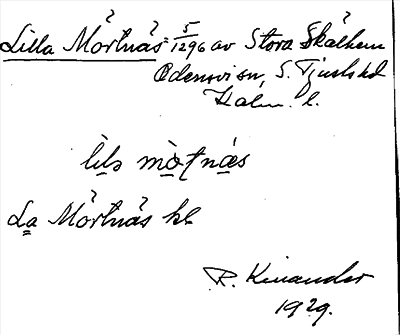 Lilla Mörtnäs = 5/1296 av Stora Skälhem
Odensvi sn, S. Tjusts hd
Kalm. l.
lìls mo̱ṯnäs
La Mörtnäs kk
R. Kinander
1929.